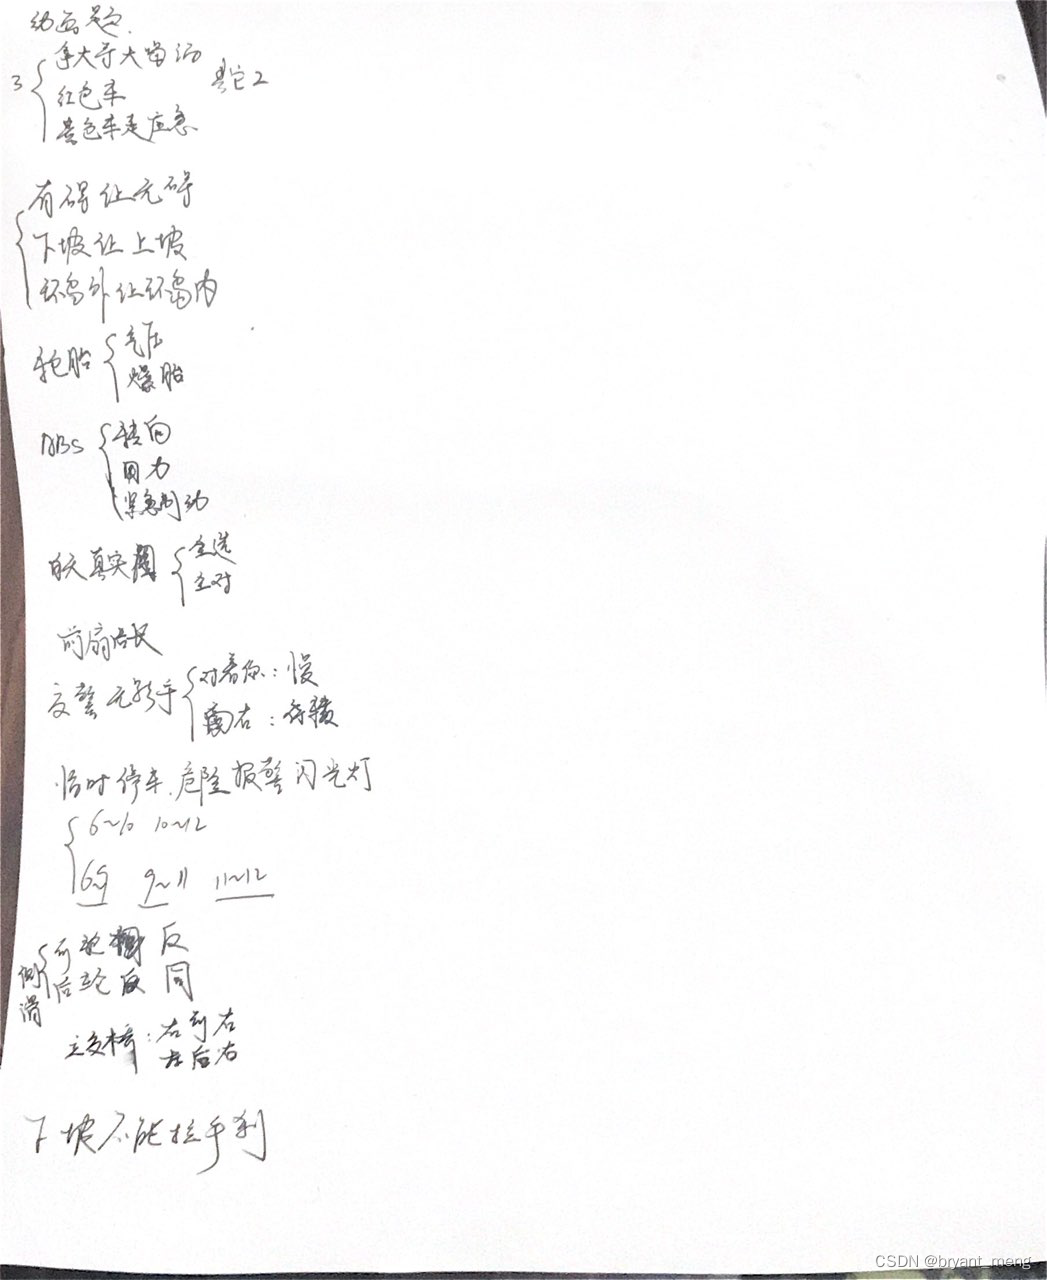 动画题.
3 拿大哥大当活 其它2
红色车
黄色车是应急
有碍让无碍
下坡让上坡
环岛外让环岛内
轮胎 气压
爆胎
ABS 转向
回力
紧急制动
白天真实图 全选
全对
前扇后长
交警无影手 对着你:慢
向右:待转
临时停车.危险报警闪光灯
6~10 10~12
6~9 9~11 11~12
侧滑 前轮 反
后轮 同
立交桥:右前右
左后右
下坡不能拉手刹
CSDN @bryant_meng